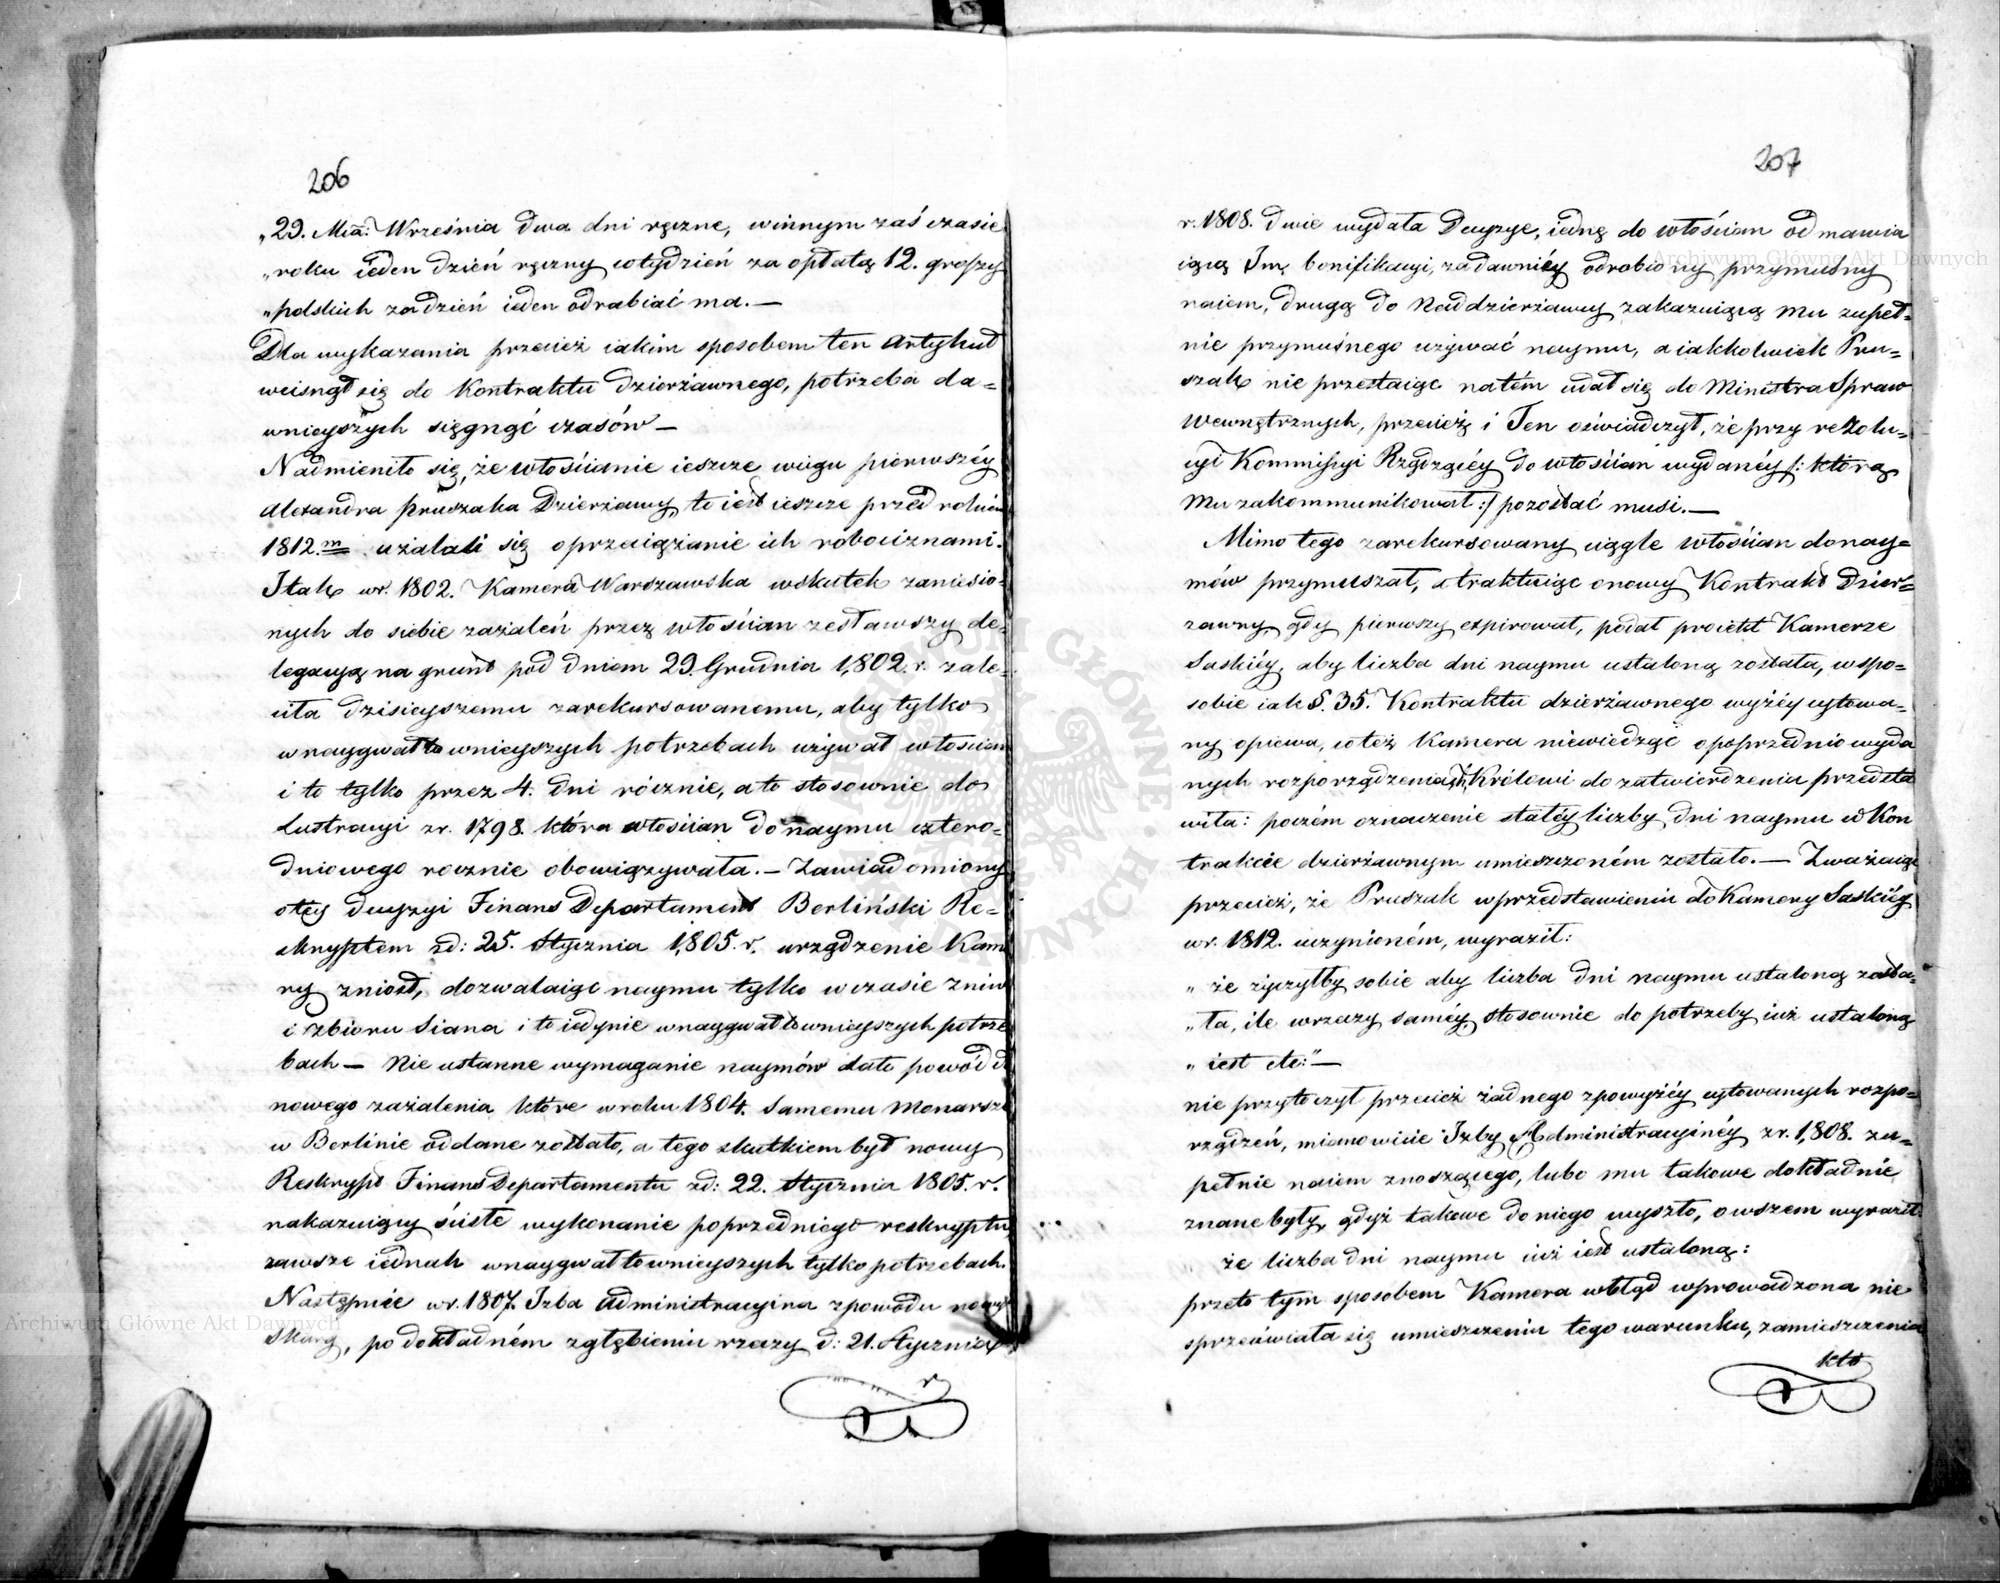 206
„29. Mia: Września dwa dni ręczne, winnym zaś czasie
„roku ieden dzień ręczny cotydzień za opłatą 12. groszy
„polskich za dzień ieden odrabiać ma. —
Dla wykazania przecież iakim sposobem ten Artykuł
wcisnął się do Kontraktu dzierżawnego, potrzeba da=
wnieyszych sięgnąć czasów —
Nadmieniło się, że włościanie ieszcze wciągu pierwszéy
Alexandra Pruszaka Dzierżawy, to iest ieszcze przed rokiem
1812.m użalali się o przeciążanie ich robociznami.
I tak w r. 1802. Kamera Warszawska wskutek zaniesio=
nych do siebie zażaleń przez włościan zesławszy de=
legacyą na grunt pod dniem 29. Grudnia 1,802. r. zale=
ciła dzisieyszemu zarekursowanemu, aby tylko
w naygwałtownieyszych potrzebach używał włościan
i to tylko przez 4. dni rócznie, a to stosownie do
Lustracyi z r. 1798. która włościan do naymu cztero=
dniowego rocznie obowiązywała. — Zawiadomiony
o téy decyzyi Finans Departament Berliński Re=
skryptem zd: 25. Stycznia 1,805. r. urządzenie Kame
ry zniósł, dozwalaiąc naymu tylko w czasie żniw
i zbioru Siana i to iedynie w naygwałtownieyszych potrze
bach — Nie ustanne wymaganie naymów dało powód do
nowego zażalenia które w roku 1804. Samemu Monarsze
w Berlinie oddane zostało, a tego skutkiem był nowy
Reskrypt Finans Departamentu zd: 22. Stycznia 1805. r.
nakazuiący ściste wykonanie poprzedniego reskryptu,
zawsze iednak w naygwałtownieyszych tylko potrzebach.
Następnie w r. 1807. Izba Administracyina z powodu nowych
Skarg, po dokładném zgłębieniu rzeczy d: 21. Stycznia
r
207
r. 1808. dwie wydała Decyzye, iednę do włościan odmawia
iącą Im bonifikacyi, za dawniéy odrobiony przymuśny
naiem, drugą do Naddzierżawcy zakazuiącą mu zupeł=
nie przymuśnego używać naymu, a iakkolwiek Pru=
szak nie przestaiąc na tém udał się do Ministra Spraw
Wewnętrznych, przecież i Ten oświadczył, że przy rezolu=
cyi Kommissyi Rządzącéy do włościan wydanéy /: którą
Mu zakommunikował :/ pozostać musi. —
Mimo tego zarekursowany ciągle włościan do nay=
mów przymuszał, a traktuiąc o nowy Kontrakt Dzier=
żawny, gdy pierwszy expirował, podał proiekt Kamerze
Saskiéy, aby liczba dni naymu ustaloną została, w spo=
sobie iak §. 35. Kontraktu dzierżawnego wyżéy cytowa=
ny opiewa, co też Kamera niewiedząc o poprzednio wyda
nych rozporządzeniach, Królowi do zatwierdzenia przedsta
wiła: poczém oznaczenie stałéy liczby dni naymu w Kon
trakcie dzierżawnym umieszczoném zostało. — Zważaiąc
przecież, że Pruszak w przedstawieniu do Kamery Saskiéy
w r. 1812. uczynioném, wyraził:
„ że życzyłby sobie aby liczba dni naymu ustaloną zosta=
„ ła, ile w rzeczy saméy, stosownie do potrzeby iuż ustaloną
„ iest etc:" —
nie przytoczył przecież żadnego z powyżéy cytowanych rozpo=
rządzeń, mianowicie Izby Administracyinéy z r. 1,808. zu=
pełnie naiem znoszącego, lubo mu takowe dokładnie
znane były, gdyż takowe do niego wyszło, owszem wyraził
że liczba dni naymu iuż iest ustaloną:
przeto tym sposobem Kamera w błąd wprowadzona nie
sprzeciwiała się umieszczeniu tego warunku, zamieszczenia
któ
Archiwum Główne Akt Dawnych
Archiwum Główne Akt Dawnych